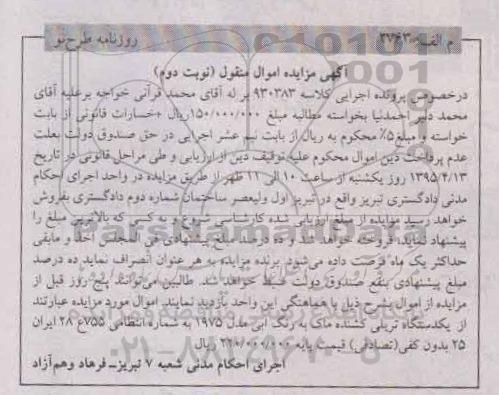 م الف: ۲۷۶۳
روزنامه طرح نو
آگهی مزایده اموال منقول (نوبت دوم)
درخصوص پرونده اجرایی کلاسه ۹۳۰۳۸۳ بر له آقای محمد قرآنی خواجه برعلیه آقای
محمد دلیر احمدنیا بخواسته مطالبه مبلغ ۱۵۰/۰۰۰/۰۰۰ریال +خسارات قانونی از بابت
خواسته و مبلغ۵٪ محکوم به ریال از بابت نیم عشر اجرایی در حق صندوق دولت بعلت
عدم پرداخت دین اموال محکوم علیه توقیف، دین از ارزیابی و طی مراحل قانونی در تاریخ
۱۳۹۵/۴/۱۳ روز یکشنبه از ساعت ۱۰ الی ۱۱ ظهر از طریق مزایده در واحد اجرای احکام
مدنی دادگستری تبریز واقع در تبریز اول ولیعصر ساختمان شماره دوم دادگستری بفروش
خواهد رسید مزایده از مبلغ ارزیابی شده کارشناسی شروع و به کسی که بالاترین مبلغ را
پیشنهاد نماید، فروخته خواهد شد و ده درصد مبلغ پیشنهادی فی المجلس اخذ و مابقی
حداکثر یک ماه فرصت داده می‌شود. برنده مزایده به هر عنوان انصراف نماید ده درصد
مبلغ پیشنهادی بنفع صندوق دولت ضبط خواهد شد. طالبین می‌توانند پنج روز قبل از
مزایده از اموال بشرح ذیل با هماهنگی این واحد بازدید نمایند. اموال مورد مزایده عبارتند
از یکدستگاه تریلی کشنده ماک به رنگ آبی مدل ۱۹۷۵ به شماره انتظامی ۷۵۵ع ۲۸ ایران
۲۵ بدون کفی(تصادفی) قیمت پایه ۲۲۰/۰۰۰/۰۰۰ ریال
اجرای احکام مدنی شعبه ۷ تبریز_ فرهاد وهم‌آزاد
ParsNamadData
۰۲۱-۸۸۳۴۹۶۷۰-۵